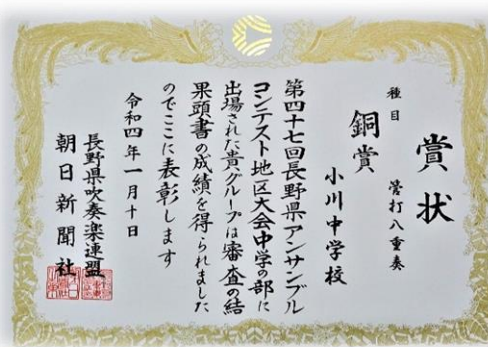 賞状
種目 管打八重奏
銅賞
小川中学校
第四十七回長野県アンサンブル
コンテスト地区大会中学の部に
出場された貴グループは審査の結
果頭書の成績を得られました
のでここに表彰します
令和四年一月十日
長野県吹奏楽連盟
朝日新聞社